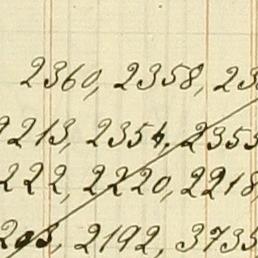 2360, 2358, 23
2213, 2354, 2353
222, 2220, 2218,
203, 2192, 3735